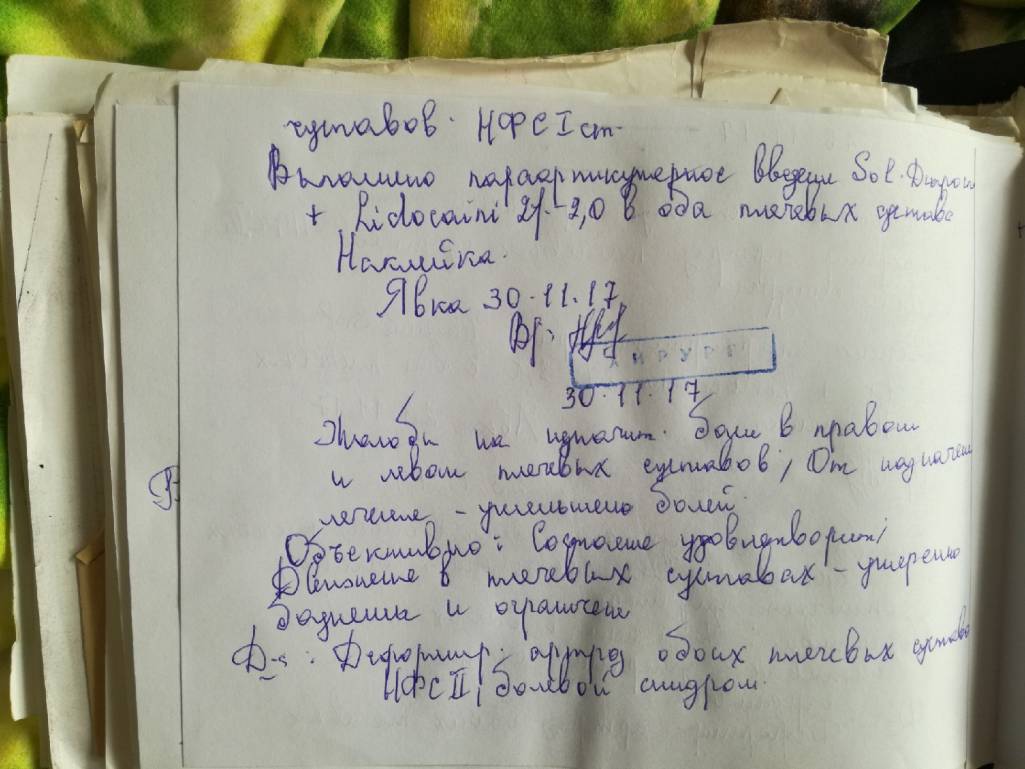 суставов. НФС I ст.
Выполнено параартикулярное введение Sol. Дипросп
+ Lidocaini 2% - 2,0 в оба плечевых сустава
Наклейка.
Явка 30.11.17
Вр:
ХИРУРГ
30.11.17
Жалобы на незначит. боли в правом
и левом плечевых суставов, От назначен
лечение - уменьшено болей.
Объективно: Состояние удовлетворит,
Движение в плечевых суставах - умеренно
болезнены и ограничен
D-s: Деформир. артроз обоих плечевых сустава
НФС II, болевой синдром.